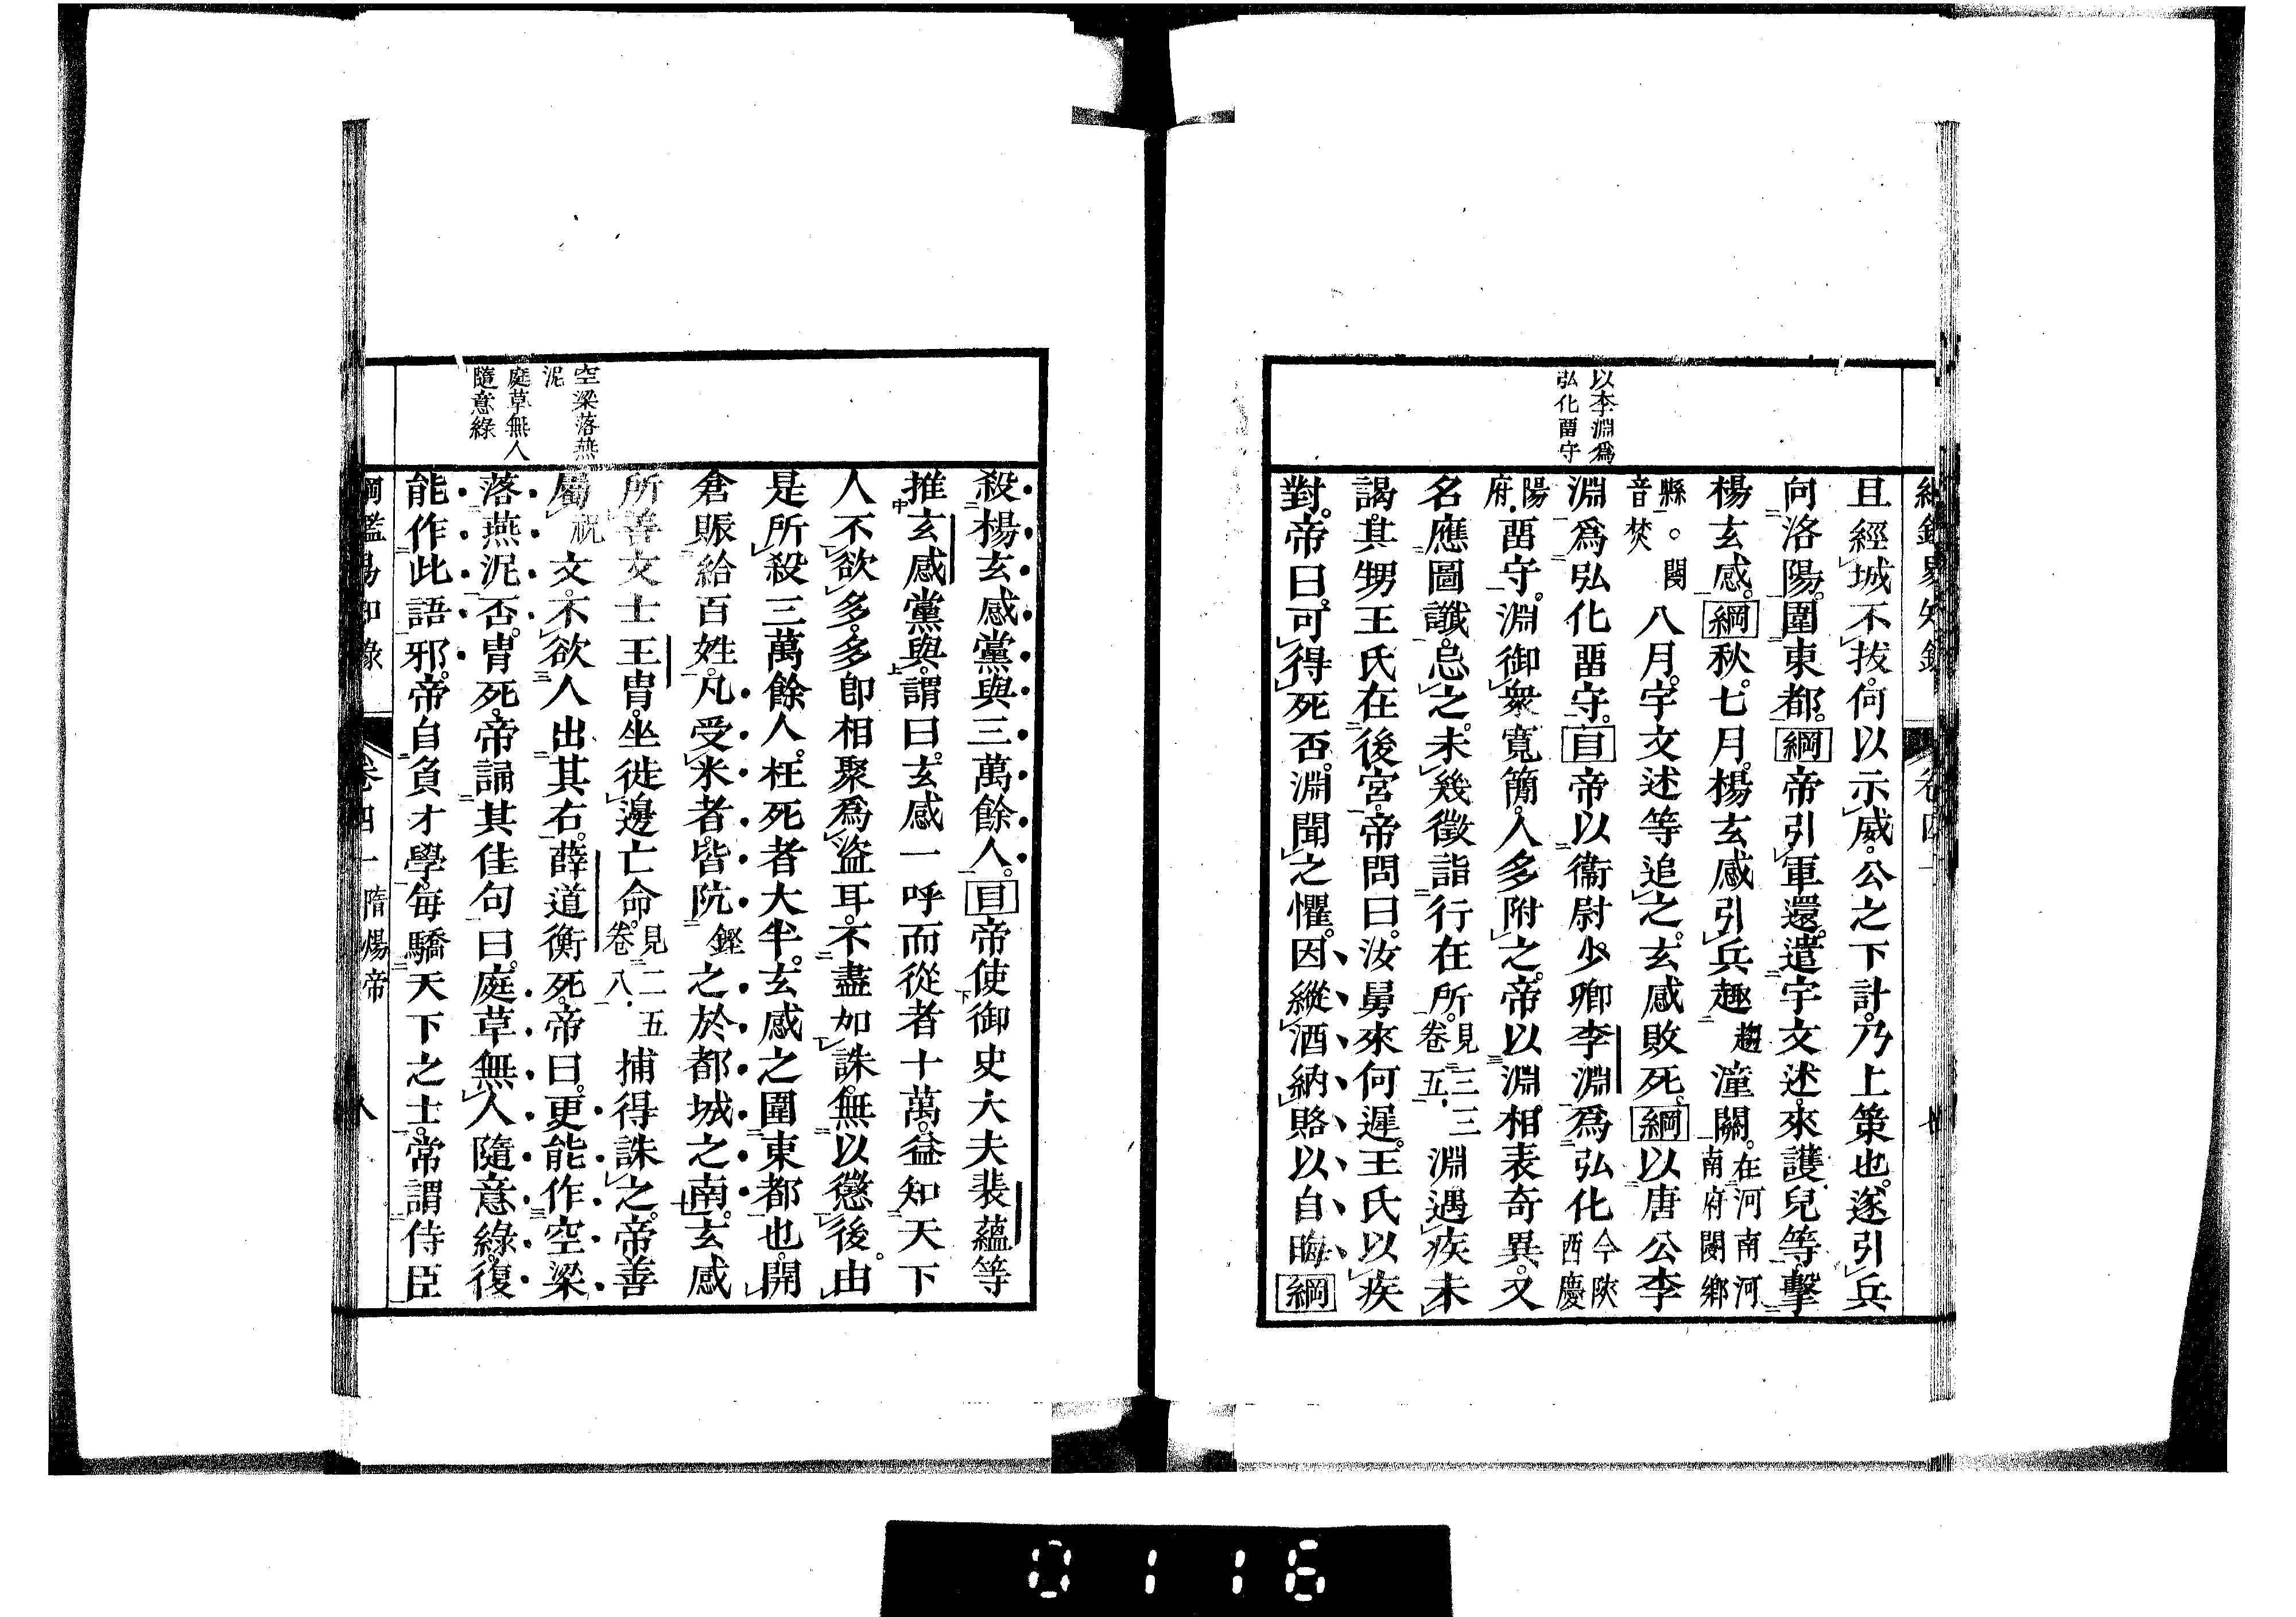 以李淵爲
弘化畱守
且經城不拔。何以示威。公之下計。乃上策也。遂引兵
向洛陽。圍東都。綱帝引軍還。遣宇文述。來護兒等。擊
楊玄感。綱秋。七月。楊玄感引兵趣趨潼關。在河南河南府閿鄉
縣。閿音焚八月。宇文述等追之。玄感敗死。綱以唐公李
淵爲弘化畱守。目帝以衞尉少卿李淵爲弘化今陝西慶
陽府.畱守。淵御衆寬簡。人多附之。帝以淵相表奇異。又
名應圖讖。忌之。未幾徵詣行在所。見三三卷五.淵遇疾未
謁。其甥王氏在後宮。帝問曰。汝舅來何遲。王氏以疾
對。帝曰。可得死否。淵聞之懼。因縱酒納賂以自晦綱
空梁落燕
泥
庭草無人
隨意綠
殺楊玄感黨與三萬餘人。目帝使御史大夫裴蘊等
推玄感黨與。謂曰。玄感一呼而從者十萬。益知天下
人不欲多。多卽相聚爲盜耳。不盡加誅。無以懲後。由
是所殺三萬餘人。枉死者大半。玄感之圍東都也。開
倉賑給百姓。凡受米者。皆阬鏗之於都城之南。玄感
所善文士王胄。坐徙邊亡命。見二五卷八.捕得誅之。帝善
屬祝文。不欲人出其右。薛道衡死。帝曰。更能作空梁
落燕泥否。胄死。帝誦其佳句曰。庭草無人隨意綠。復
能作此語邪。帝自負才學。每驕天下之士。常謂侍臣
綱鑑易知錄 卷四十 隋煬帝 八
0116